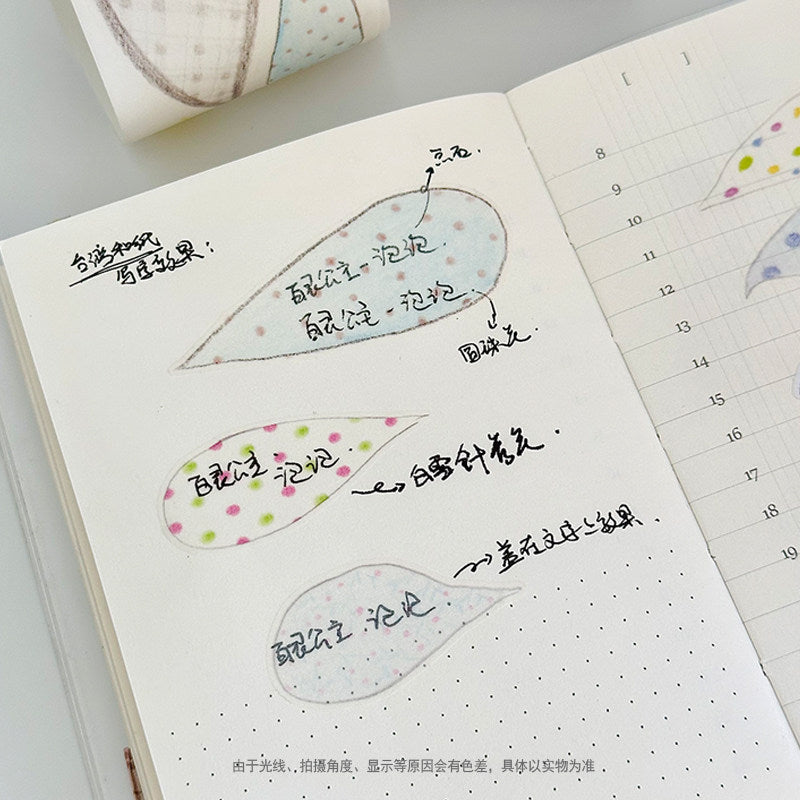 点石.
台湾和纸
写字效果:
百灵公主-泡泡.
百灵公主-泡泡.
圆珠笔.
百灵公主 泡泡.
白雪针管笔.
盖在文字上效果.
百灵公主.泡泡.
[ ]
8
9
10
11
12
13
14
15
16
17
18
19
由于光线、拍摄角度、显示等原因会有色差，具体以实物为准